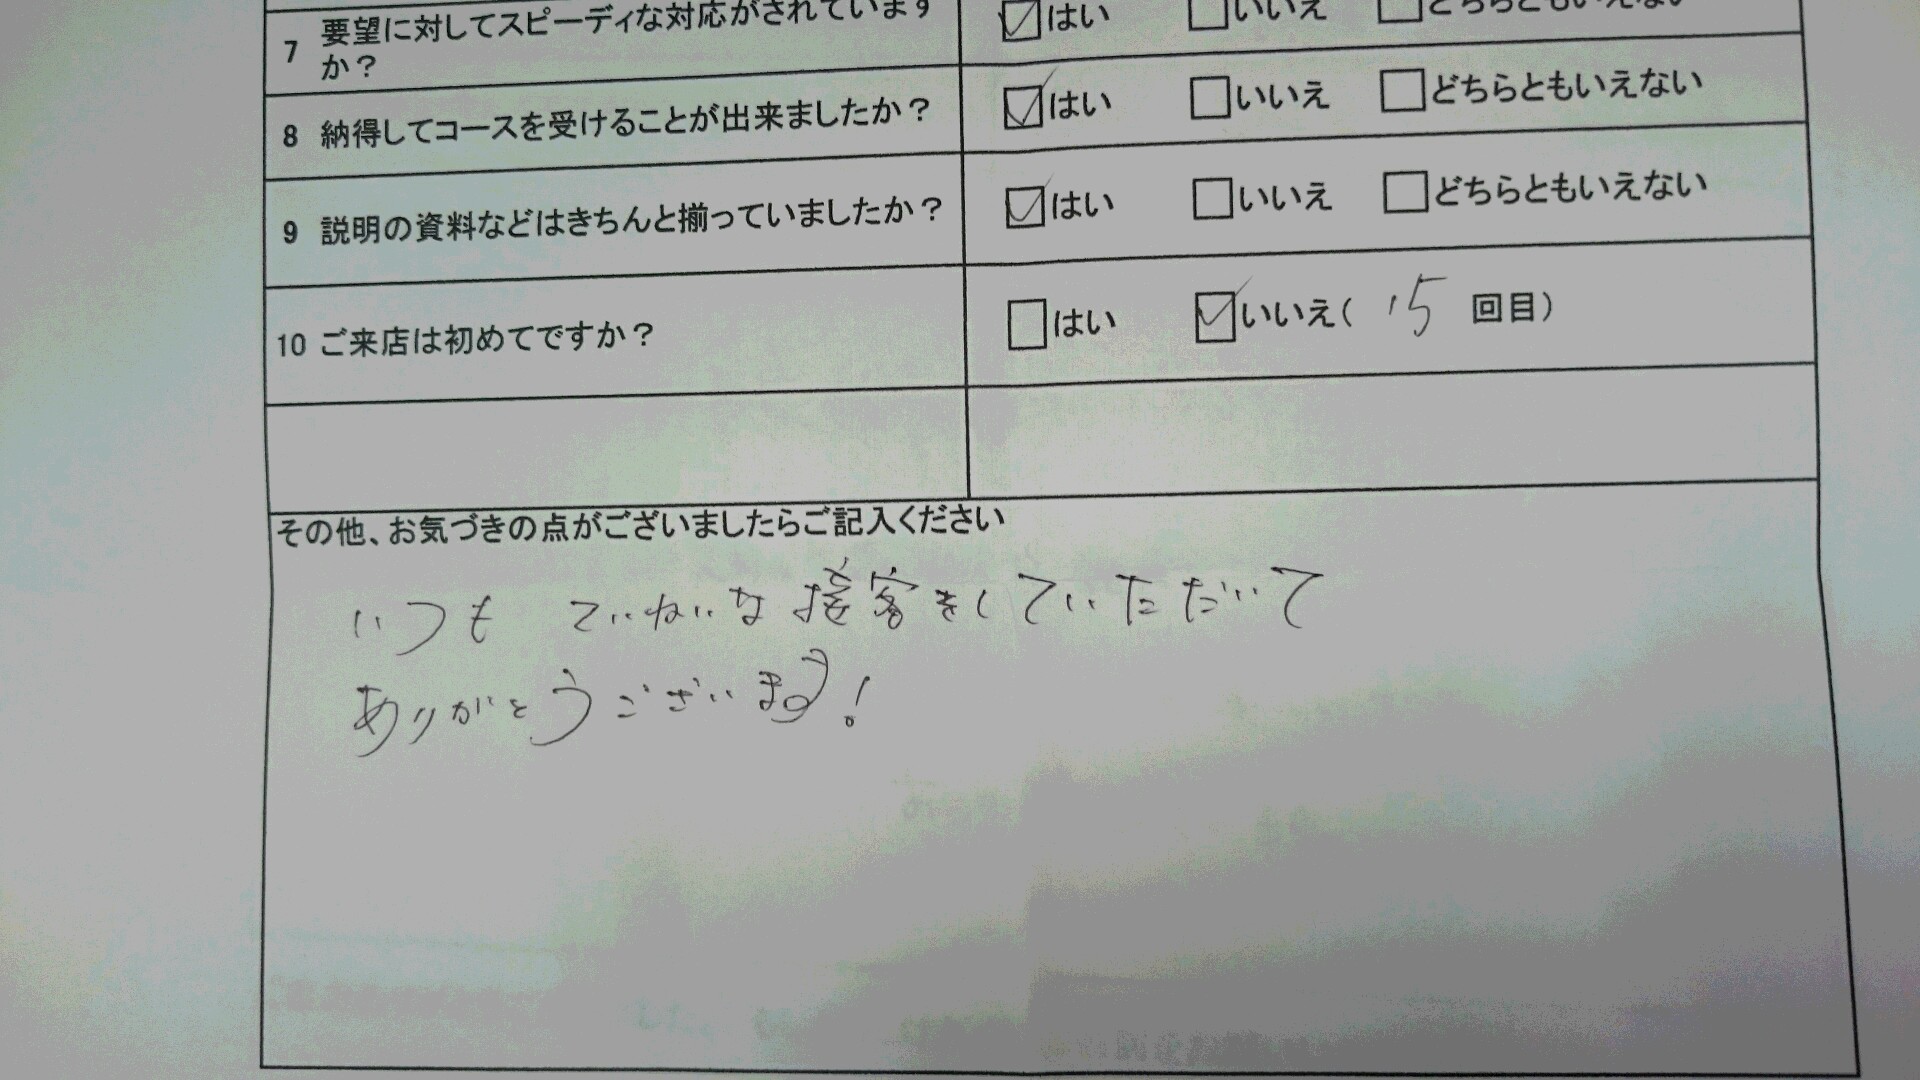 7 要望に対してスピーディな対応がされています ☑はい □いいえ □どちらともいえない
か？
8 納得してコースを受けることが出来ましたか？ ☑はい □いいえ □どちらともいえない
9 説明の資料などはきちんと揃っていましたか？ ☑はい □いいえ □どちらともいえない
10 ご来店は初めてですか？ □はい ☑いいえ（ 15 回目）
その他、お気づきの点がございましたらご記入ください
いつも ていねいな接客をしていただいて
ありがとうございます！